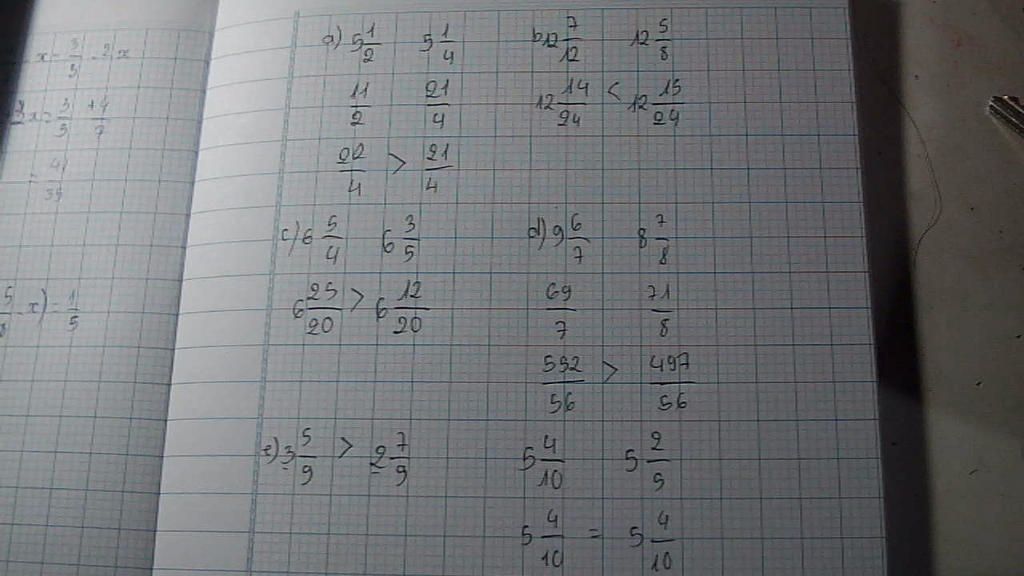 x = 3/3 - 2x
2x = 3/3 + 4/7
5/8 - x) = 1/5
a) 5 1/2 5 1/4
11/2 21/4
22/4 > 21/4
b) 12 7/12 12 5/8
12 14/24 < 12 15/24
c) 6 5/4 6 3/5
6 25/20 > 6 12/20
d) 9 6/7 8 7/8
69/7 71/8
552/56 > 497/56
e) 3 5/9 > 2 7/9
5 4/10 5 2/5
5 4/10 = 5 4/10